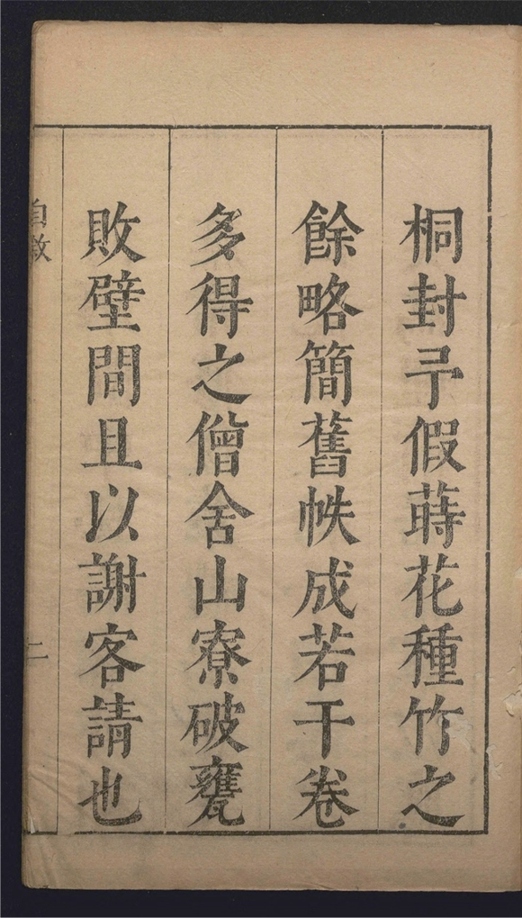 桐封予假蒔花種竹之
餘略簡舊帙成若干卷
多得之僧舍山寮破甕
敗壁間且以謝客請也
自敘
二